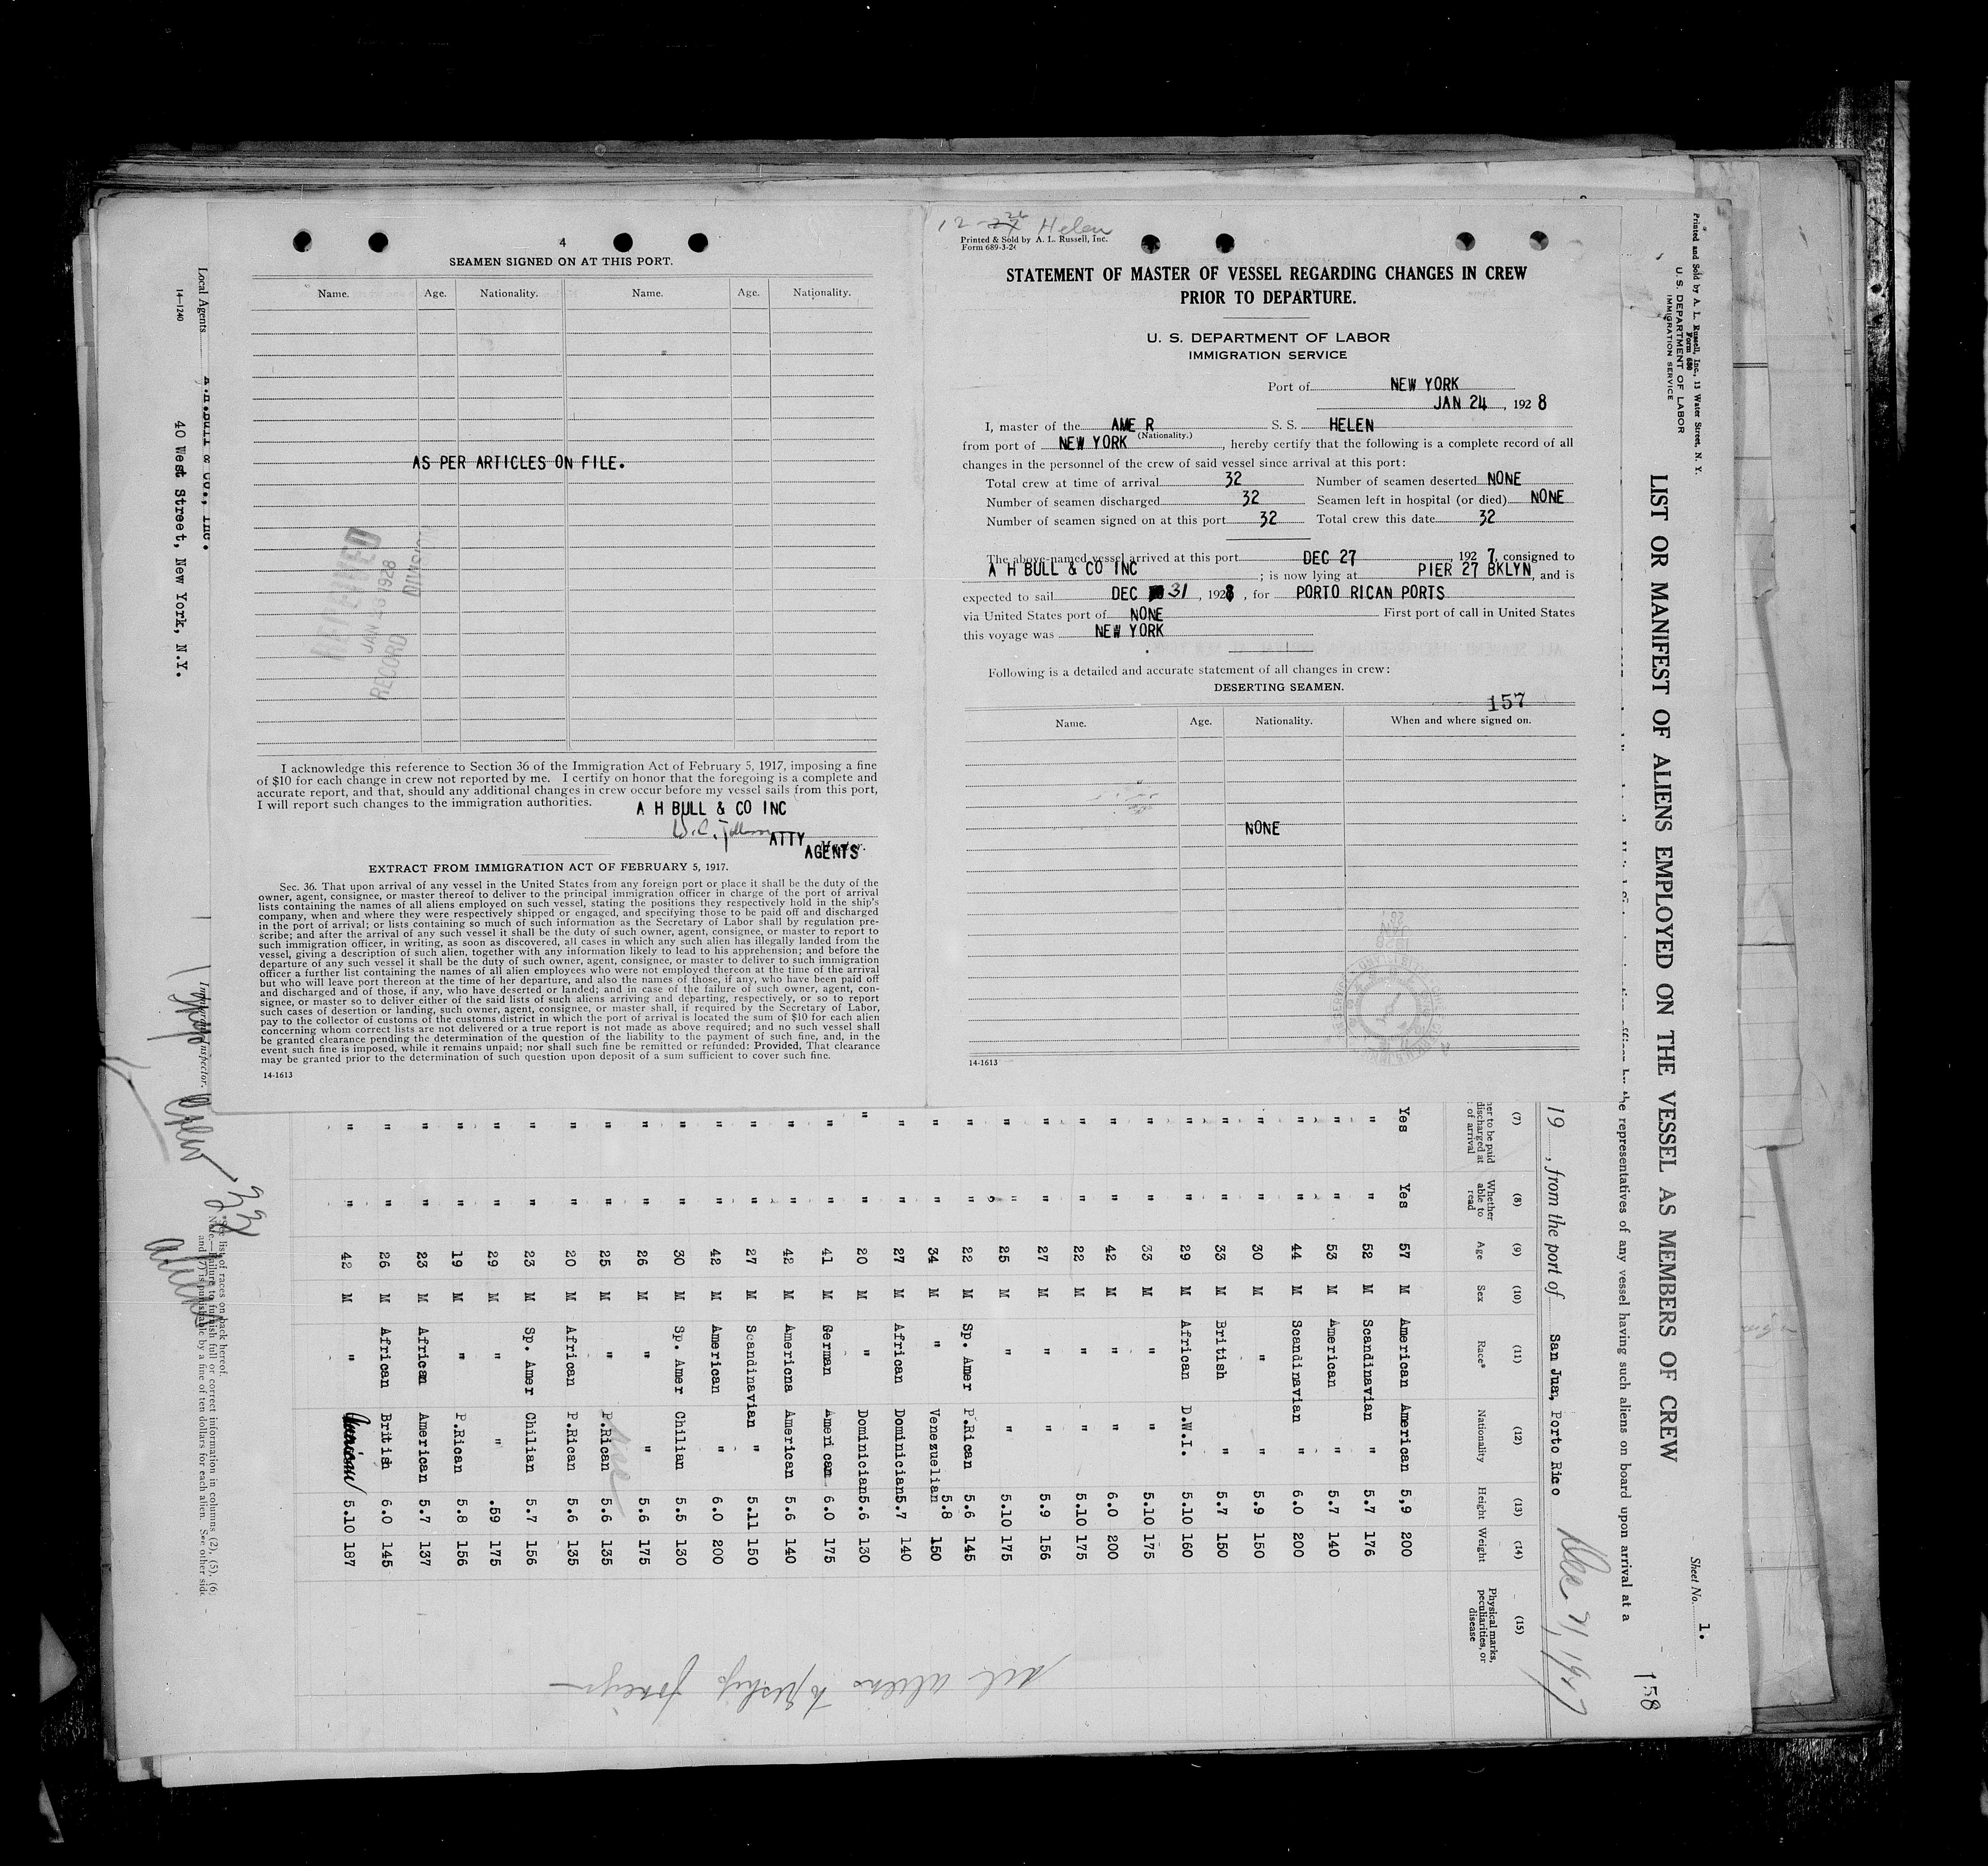 4
SEAMEN SIGNED ON AT THIS PORT.
Name. Age. Nationality. Name. Age. Nationality.
AS PER ARTICLES ON FILE.
JAN 26 1928
RECORD DIVISION
I acknowledge this reference to Section 36 of the Immigration Act of February 5, 1917, imposing a fine
of $10 for each change in crew not reported by me. I certify on honor that the foregoing is a complete and
accurate report, and that, should any additional changes in crew occur before my vessel sails from this port,
I will report such changes to the immigration authorities.
A H BULL & CO INC
ATTY
AGENTS
EXTRACT FROM IMMIGRATION ACT OF FEBRUARY 5, 1917.
Sec. 36. That upon arrival of any vessel in the United States from any foreign port or place it shall be the duty of the
owner, agent, consignee, or master thereof to deliver to the principal immigration officer in charge of the port of arrival
lists containing the names of all aliens employed on such vessel, stating the positions they respectively hold in the ship's
company, when and where they were respectively shipped or engaged, and specifying those to be paid off and discharged
in the port of arrival; or lists containing so much of such information as the Secretary of Labor shall by regulation pre-
scribe; and after the arrival of any such vessel it shall be the duty of such owner, agent, consignee, or master to report to
such immigration officer, in writing, as soon as discovered, all cases in which any such alien has illegally landed from the
vessel, giving a description of such alien, together with any information likely to lead to his apprehension; and before the
departure of any such vessel it shall be the duty of such owner, agent, consignee, or master to deliver to such immigration
officer a further list containing the names of all alien employees who were not employed thereon at the time of the arrival
but who will leave port thereon at the time of her departure, and also the names of those, if any, who have been paid off
and discharged and of those, if any, who have deserted or landed; and in case of the failure of such owner, agent, con-
signee, or master so to deliver either of the said lists of such aliens arriving and departing, respectively, or so to report
such cases of desertion or landing, such owner, agent, consignee, or master shall, if required by the Secretary of Labor,
pay to the collector of customs of the customs district in which the port of arrival is located the sum of $10 for each alien
concerning whom correct lists are not delivered or a true report is not made as above required; and no such vessel shall
be granted clearance pending the determination of the question of the liability to the payment of such fine, and, in the
event such fine is imposed, while it remains unpaid; nor shall such fine be remitted or refunded: Provided, That clearance
may be granted prior to the determination of such question upon deposit of a sum sufficient to cover such fine.
14-1613
12-26 Helen
Printed & Sold by A. L. Russell, Inc.
Form 689-3-26
STATEMENT OF MASTER OF VESSEL REGARDING CHANGES IN CREW
PRIOR TO DEPARTURE.
U. S. DEPARTMENT OF LABOR
IMMIGRATION SERVICE
Port of NEW YORK
JAN 24, 1928
I, master of the AME R S. S. HELEN
(Nationality.)
from port of NEW YORK, hereby certify that the following is a complete record of all
changes in the personnel of the crew of said vessel since arrival at this port:
Total crew at time of arrival 32 Number of seamen deserted NONE
Number of seamen discharged 32 Seamen left in hospital (or died) NONE
Number of seamen signed on at this port 32 Total crew this date 32
The above-named vessel arrived at this port DEC 27, 1927, consigned to
A H BULL & CO INC; is now lying at PIER 27 BKLYN, and is
expected to sail DEC 31, 1928, for PORTO RICAN PORTS
via United States port of NONE First port of call in United States
this voyage was NEW YORK
Following is a detailed and accurate statement of all changes in crew:
DESERTING SEAMEN.
157
Name. Age. Nationality. When and where signed on.
NONE
14-1613
Printed and Sold by A. L. Russell, Inc., 13 Water Street, N. Y.
Form 680
U. S. DEPARTMENT OF LABOR
IMMIGRATION SERVICE
Sheet No. 1.
LIST OR MANIFEST OF ALIENS EMPLOYED ON THE VESSEL AS MEMBERS OF CREW
158
the representatives of any vessel having such aliens on board upon arrival at a
19 , from the port of San Juan, Porto Rico Dec 21, 1927
(7) (8) (9) (10) (11) (12) (13) (14) (15)
her to be paid discharged at of arrival Whether able to read Age Sex Race* Nationality Height Weight Physical marks, peculiarities, or disease
Yes Yes 57 M American American 5,9 200
" " 52 M Scandinavian " 5.7 176
" " 53 M American " 5.7 140
" " 44 M Scandinavian " 6.0 200
" " 30 M " " 5.9 150
" " 33 M British " 5.7 150
" " 29 M African D.W.I. 5.10 160
" " 33 M " " 5.10 175
" " 42 M " " 6.0 200
" " 22 M " " 5.10 175
" " 27 M " " 5.9 156
" " 25 M " " 5.10 175
" " 22 M Sp. Amer P.Rican 5.6 145
" " 34 M " Venezuelian 5.8 150
" " 27 M African Dominician 5.7 140
" " 20 M " Dominician 5.6 130
" " 41 M German American 6.0 175
" " 42 M Americna American 5.6 140
" " 27 M Scandinavian " 5.11 150
" " 42 M American " 6.0 200
" " 30 M Sp. Amer Chilian 5.5 130
" " 26 M " " 5.6 175
" " 25 M " P.Rican 5.6 135
" " 20 M African P.Rican 5.6 135
" " 23 M Sp. Amer Chilian 5.7 156
" " 29 M " " .59 175
" " 19 M " P.Rican 5.8 156
" " 23 M African American 5.7 137
" " 26 M African British 6.0 145
" " 42 M " American 5.10 187
all aliens to reship foreign
*See list of races on back hereof.
Note.—Failure to furnish full or correct information in columns (2), (5), (6)
and (7) is punishable by a fine of ten dollars for each alien. See other side
Local Agents A.H.Bull & Co., Inc.
40 West Street, New York, N.Y.
14-1240
Immigrant Inspector.
32
aliens